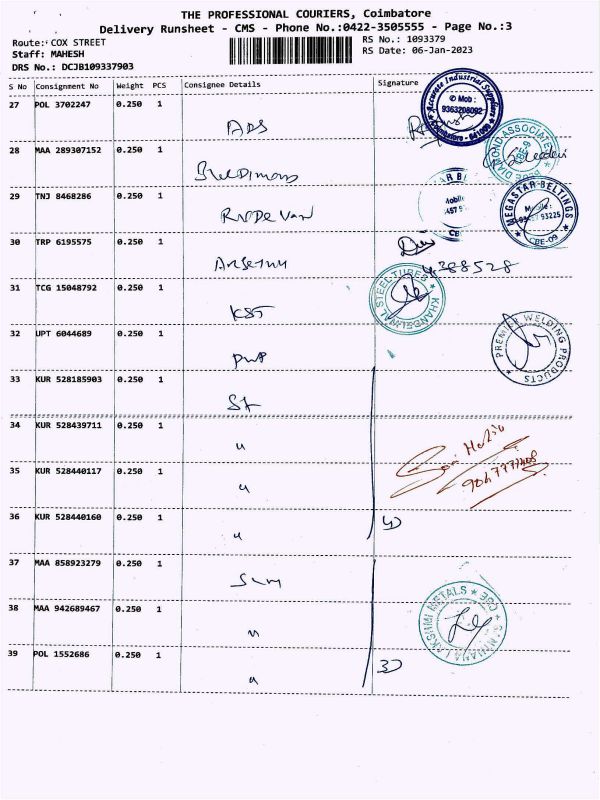 THE PROFESSIONAL COURIERS, Coimbatore
Delivery Runsheet - CMS - Phone No.:0422-3505555 - Page No.:3
Route: COX STREET
Staff: MAHESH
DRS No.: DCJB109337903
RS No.: 1093379
RS Date: 06-Jan-2023
S No Consignment No Weight PCS Consignee Details Signature
27 POL 3702247 0.250 1 ADS
Accurate Industrial Suppliers
✆ Mob :
9363208092
Coimbatore - 641009
28 MAA 289307152 0.250 1
DIAMOND ASSOCIATES
29 TNJ 8468286 0.250 1
Mobile
MEGASTAR BELTINGS
Mobile :
93225
CBE-09
30 TRP 6195575 0.250 1
4388528
31 TCG 15048792 0.250 1 KST
KHANDELWAL STEEL TUBES
32 UPT 6044689 0.250 1 PWP
PREMIER WELDING PRODUCTS
33 KUR 528185903 0.250 1 St
34 KUR 528439711 0.250 1 "
35 KUR 528440117 0.250 1 "
36 KUR 528440160 0.250 1 "
4)
37 MAA 858923279 0.250 1 SLM
38 MAA 942689467 0.250 1 "
LAKSHMI METALS ★ CBE
39 POL 1552686 0.250 1 "
3)